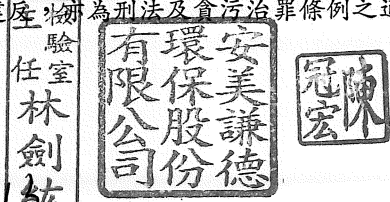 反，亦為刑法及貪污治罪條例之
檢驗室
主任
林劍
安美謙德
環保股份
有限公司
陳
冠宏